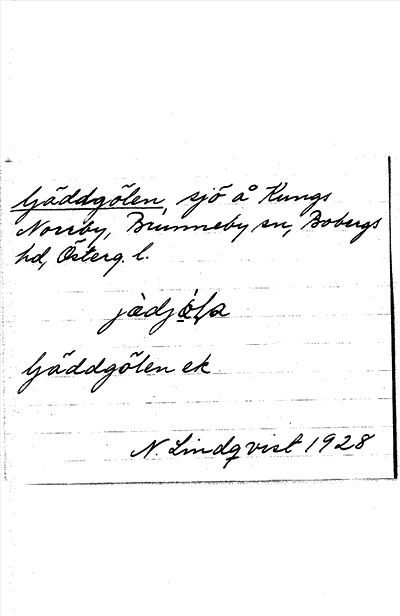 Gäddgölen, sjö å Kungs
Norrby, Brunneby sn, Bobergs
hd, Österg. l.
Gäddgölen ek
N. Lindqvist 1928